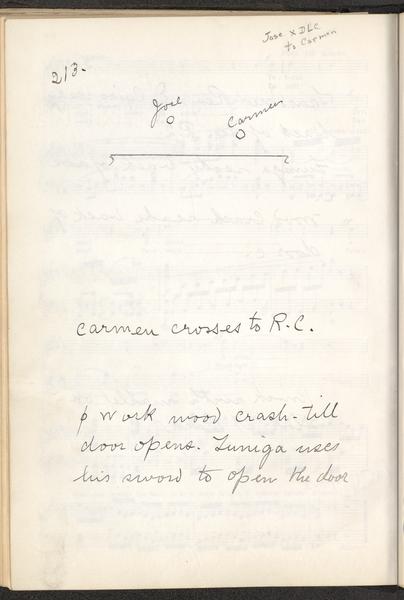 Jose X DLC
to Carmen
213-
José
Carmen
Carmen crosses to R.C.
φ Work wood crash - till
door opens. Zuniga uses
his sword to open the door